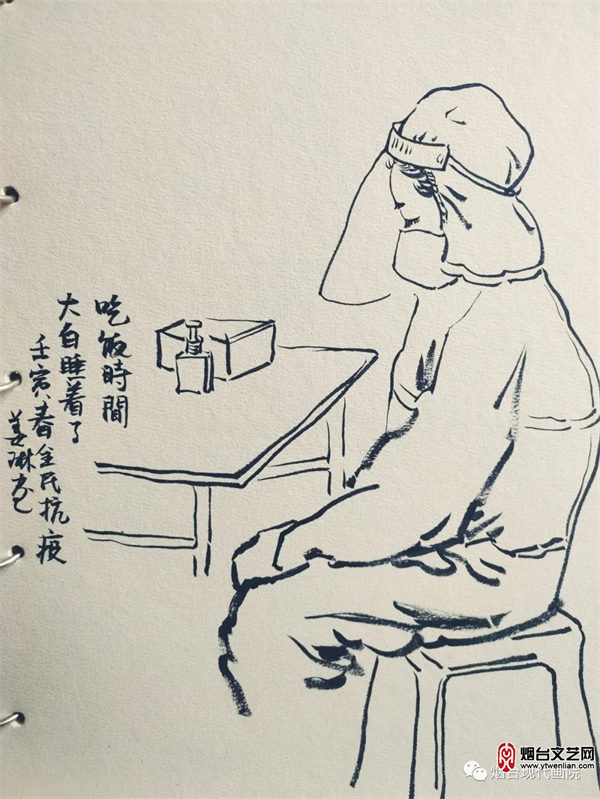 吃饭時間
大白睡着了
壬寅春全民抗疫
姜琳
烟台文艺网
www.ytwenlian.com
烟台现代画院